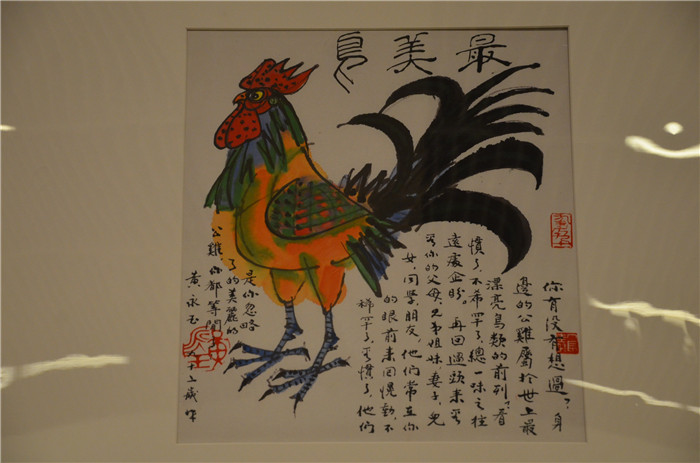 最美鳥
你有没有想過?身
邊的公雞屬於世上最
漂亮鳥類的前列?看
慣了,不希罕了,總一味之往
遠處企盼。再回過頭来看
看你的父母,兄弟姐妹,妻子,兒
女,同學,朋友,他們常在你
的眼前来回愰動,不
稀罕了,看慣了,他們
是你忽略
了的美麗的
公雞,你都等閒
黄永玉
歲作